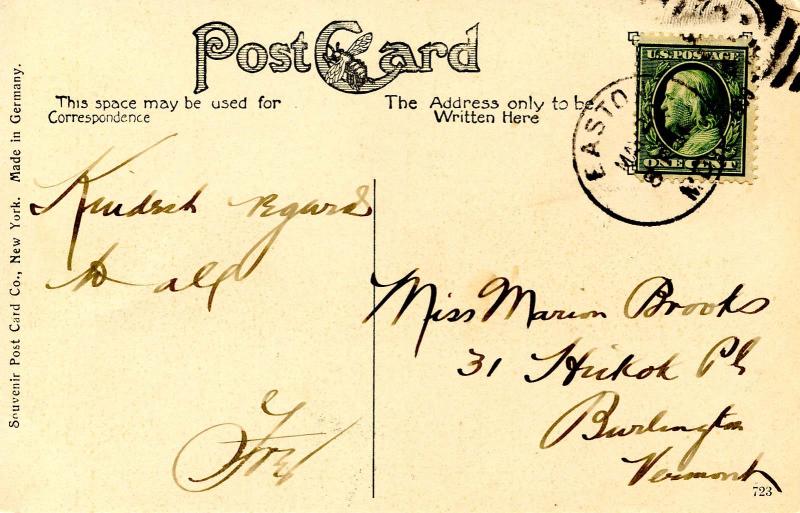 Post Card
This space may be used for
Correspondence
The Address only to be
Written Here
U.S. POSTAGE
ONE CENT
EASTO
Souvenir Post Card Co., New York. Made in Germany.
Kindest regards
to all
Miss Marion Brooks
31 Hickok Pl
Burlington
Vermont
723